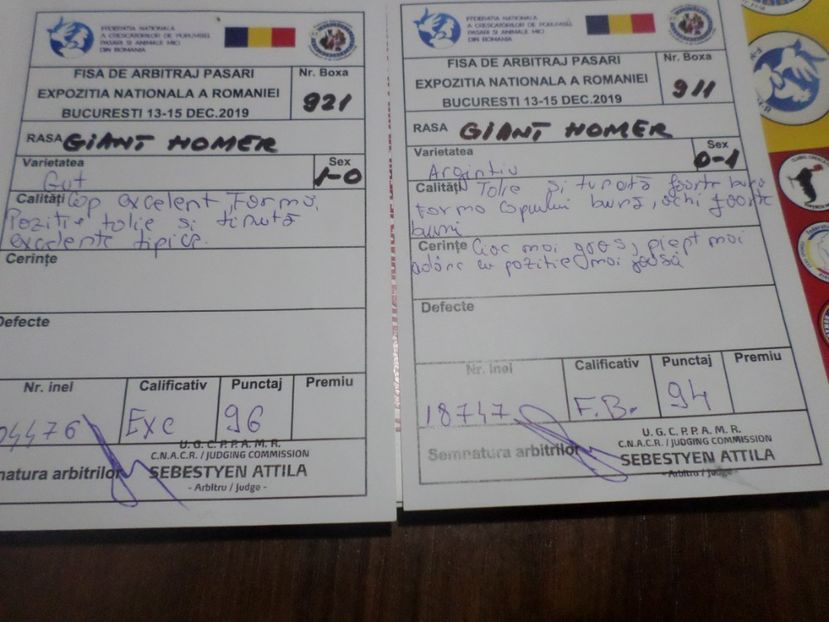 FEDERATIA NATIONALA
A CRESCATORILOR DE PORUMBEI,
PASARI SI ANIMALE MICI
DIN ROMANIA
FISA DE ARBITRAJ PASARI
EXPOZITIA NATIONALA A ROMANIEI
BUCURESTI 13-15 DEC.2019
Nr. Boxa
921
RASA GIANT HOMER
Varietatea
Sex
1-0
Calități Cap excelent, forma,
Pozitie talie si tinută
excelente tipice.
Cerințe
Defecte
Nr. inel
Calificativ
Punctaj
Premiu
04476
Exc
96
U. G. C. P. P. A. M. R.
C.N.A.C.R. / JUDGING COMMISSION
SEBESTYEN ATTILA
- Arbitru / Judge -
natura arbitrilor
FEDERATIA NATIONALA
A CRESCATORILOR DE PORUMBEI,
PASARI SI ANIMALE MICI
DIN ROMANIA
FISA DE ARBITRAJ PASARI
EXPOZITIA NATIONALA A ROMANIEI
BUCURESTI 13-15 DEC.2019
Nr. Boxa
911
RASA GIANT HOMER
Varietatea
Argintiu
Sex
0-1
Calități Talie si tinută foarte bună
forma capului bună, ochi foarte
buni
Cerințe Cioc mai gros, piept mai
adânc cu pozitie mai joasă
Defecte
Nr. inel
Calificativ
Punctaj
Premiu
18747
F.B.
94
U. G. C. P. P. A. M. R.
C.N.A.C.R. / JUDGING COMMISSION
Semnatura arbitrilor
SEBESTYEN ATTILA
- Arbitru / Judge -